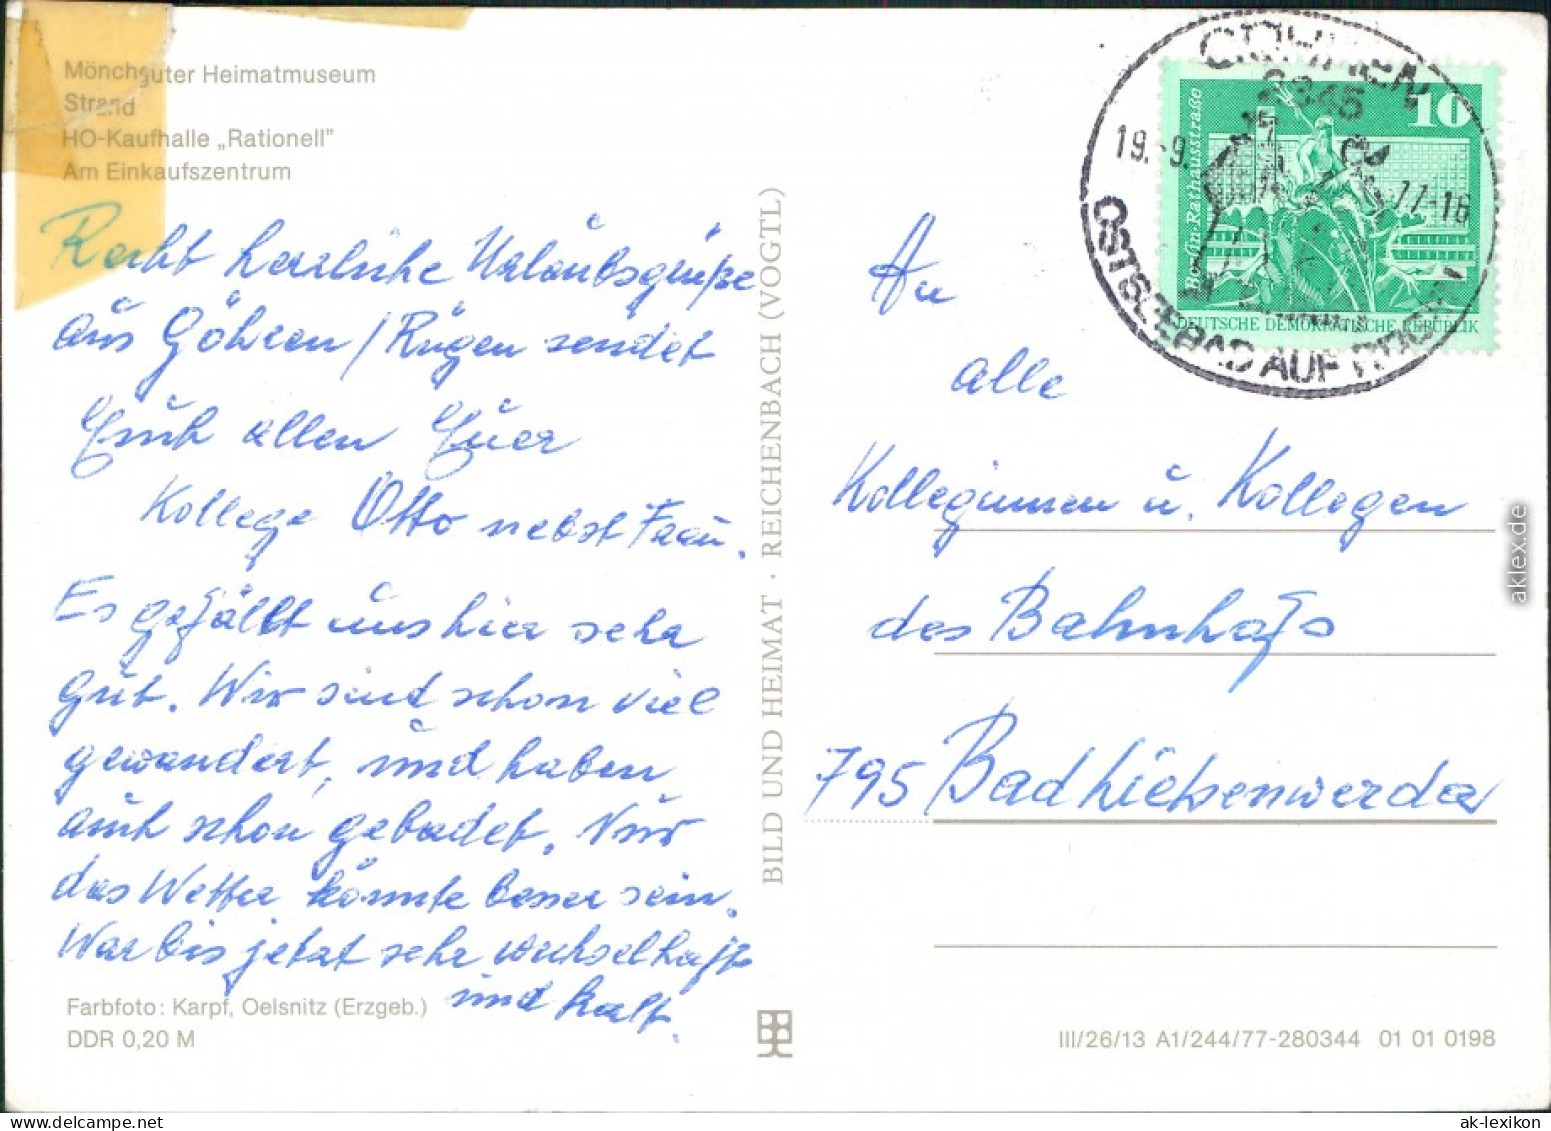 Mönchguter Heimatmuseum
Strand
HO-Kaufhalle „Rationell"
Am Einkaufszentrum
Recht herzliche Urlaubsgrüße
aus Göhren / Rügen sendet
Euch allen Euer
Kollege Otto nebst Frau.
Es gefällt uns hier sehr
gut. Wir sind schon viel
gewandert, und haben
auch schon gebadet. Nur
das Wetter könnte besser sein.
War bis jetzt sehr wechselhaft
und kalt.
Farbfoto: Karpf, Oelsnitz (Erzgeb.)
DDR 0,20 M
BILD UND HEIMAT · REICHENBACH (VOGTL)
2345
19.-9. 77-16
OSTSEEBAD AUF
10
Berlin-Rathausstraße
DEUTSCHE DEMOKRATISCHE REPUBLIK
An
alle
Kolleginnen u. Kollegen
des Bahnhofs
795 Bad Liebenwerda
III/26/13 A1/244/77-280344 01 01 0198
aklex.de
ak-lexikon